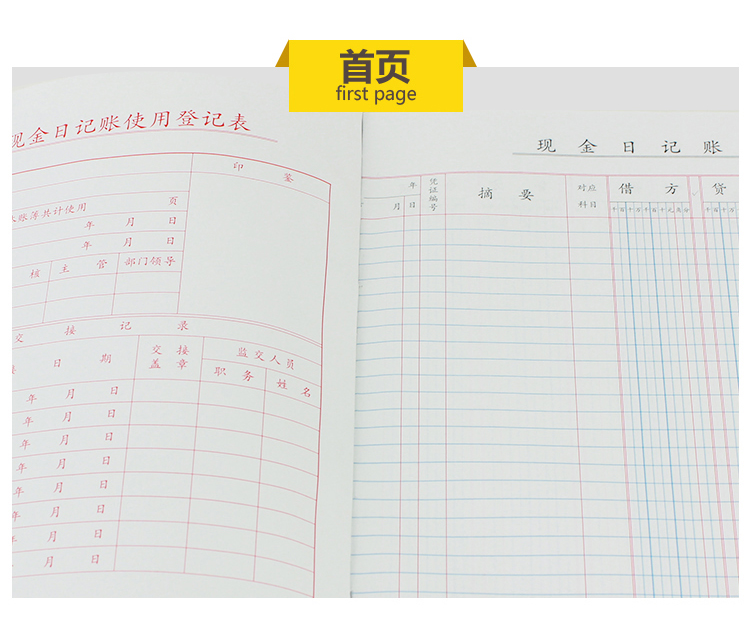 首页
first page
现金日记账使用登记表
印 鉴
账簿共计使用 页
年 月 日
年 月 日
核 主 管 部门领导
交 接 记 录
日 期 交 接 盖 章 监 交 人 员
职 务 姓 名
年 月 日
年 月 日
年 月 日
年 月 日
年 月 日
年 月 日
年 月 日
年 月 日
现 金 日 记 账
年 凭证编号 摘 要 对应科目 借 方 贷
月 日 千百十万千百十元角分 千百十万